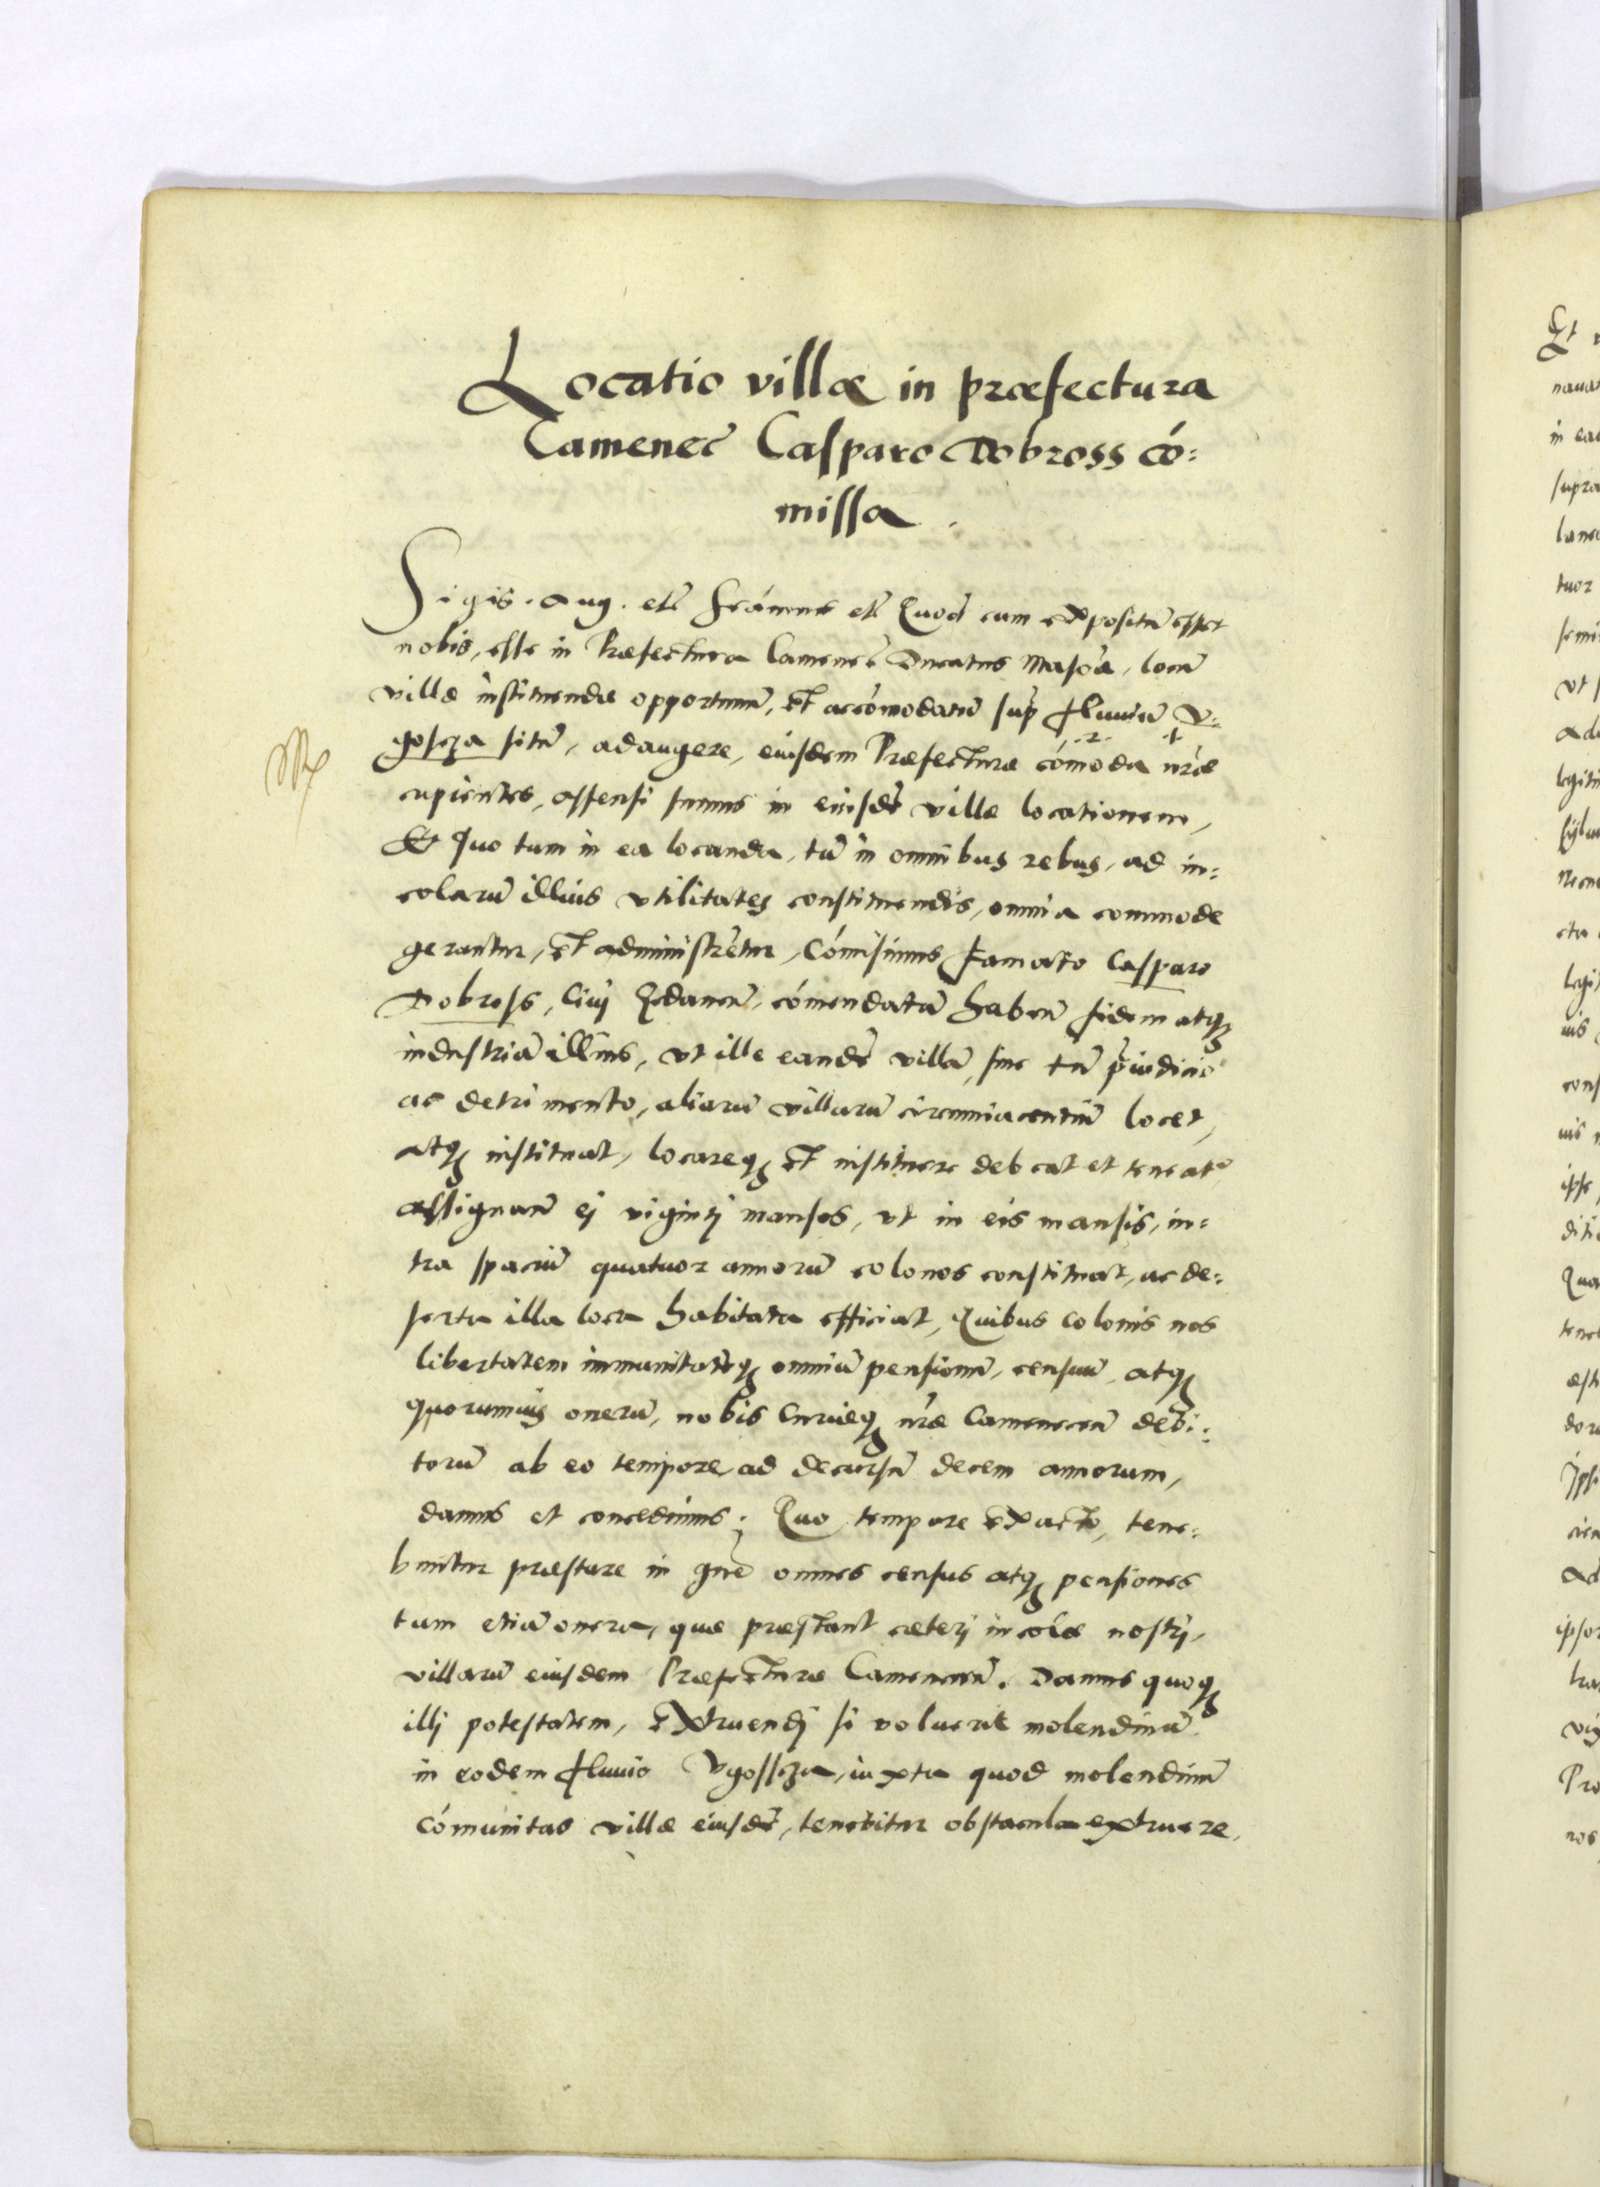 Locatio villæ in præfectura
Camenec̃ Casparo Dobross có=
missa.
Sigis. Aug. etc̃ Quod cum expositũ esset
nobis, esse in Præfectura Camenec̃ Ducatus Masoã, locũ
villæ instituendæ opportunũ, et accómodatũ sup̃ fluuiũ V=
goscza sitũ, adaugere, eiusdem Præfecturæ cómoda nr̃æ
cupientes, assensi sumus in eiusdẽ villæ locationem,
Et quo tum in ea locanda, tũ in omnibus rebus, ad in=
colarũ illius vtilitates constituendis, omnia commode
gerantur, et administrẽtur, Cómisimus famato Casparo
Dobross, Ciui Gedanen̄, cómendatũ habeñ fidem atq3
industriã illius, vt ille eandẽ villã, sine tñ p̃iudicio
ac detrimento, aliarũ villarũ circumiacentiũ locet,
atq3 instituat, locareq3 et instituere debeat et teneat~
assignam̃ ej vigintj mansos, vt in eis mansis, in=
tra spaciũ quatuor annorũ colonos constituat, ac de=
serta illa loca habitata efficiat, Quibus colonis nos
libertatem immunitatẽq3 omniũ pensionũ, censuũ, atq3
quorumuis onerũ, nobis Curiæq3 nr̃æ Cameneceñ debi=
torũ ab eo tempore ad decursũ decem annorum,
damus et concedimus; Quo tempore exacto, tene=
buntur præstare in gñe omnes census atq3 pensiones
tum etiã onera, quæ præstant cæterj incolæ nostrj,
villarũ eiusdem Præfecturæ Cameneceñ. Damus quoq3
illj potestatem, extruendj si voluerit molendinũ
in eodem fluuio Vgossza, iuxta quod molendinũ
cómunitas villæ eiusdẽ, tenebitur obstacula extruere,